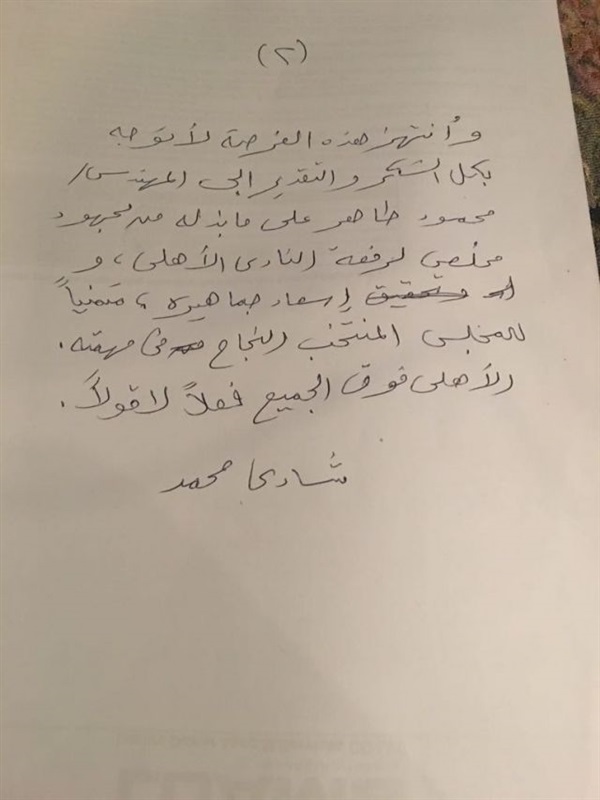 (٢)
وأنتهز هذه الفرصة لأتوجه
بكل الشكر والتقدير إلى المهندس/
محمود طاهر على ما بذله من جهود
مخلصة لرفعة النادى الأهلى، و
إسعاد جماهيره، متمنياً
للمجلس المنتخب النجاح فى مهمته.
الأهلى فوق الجميع فعلاً لا قولاً.
شادى محمد